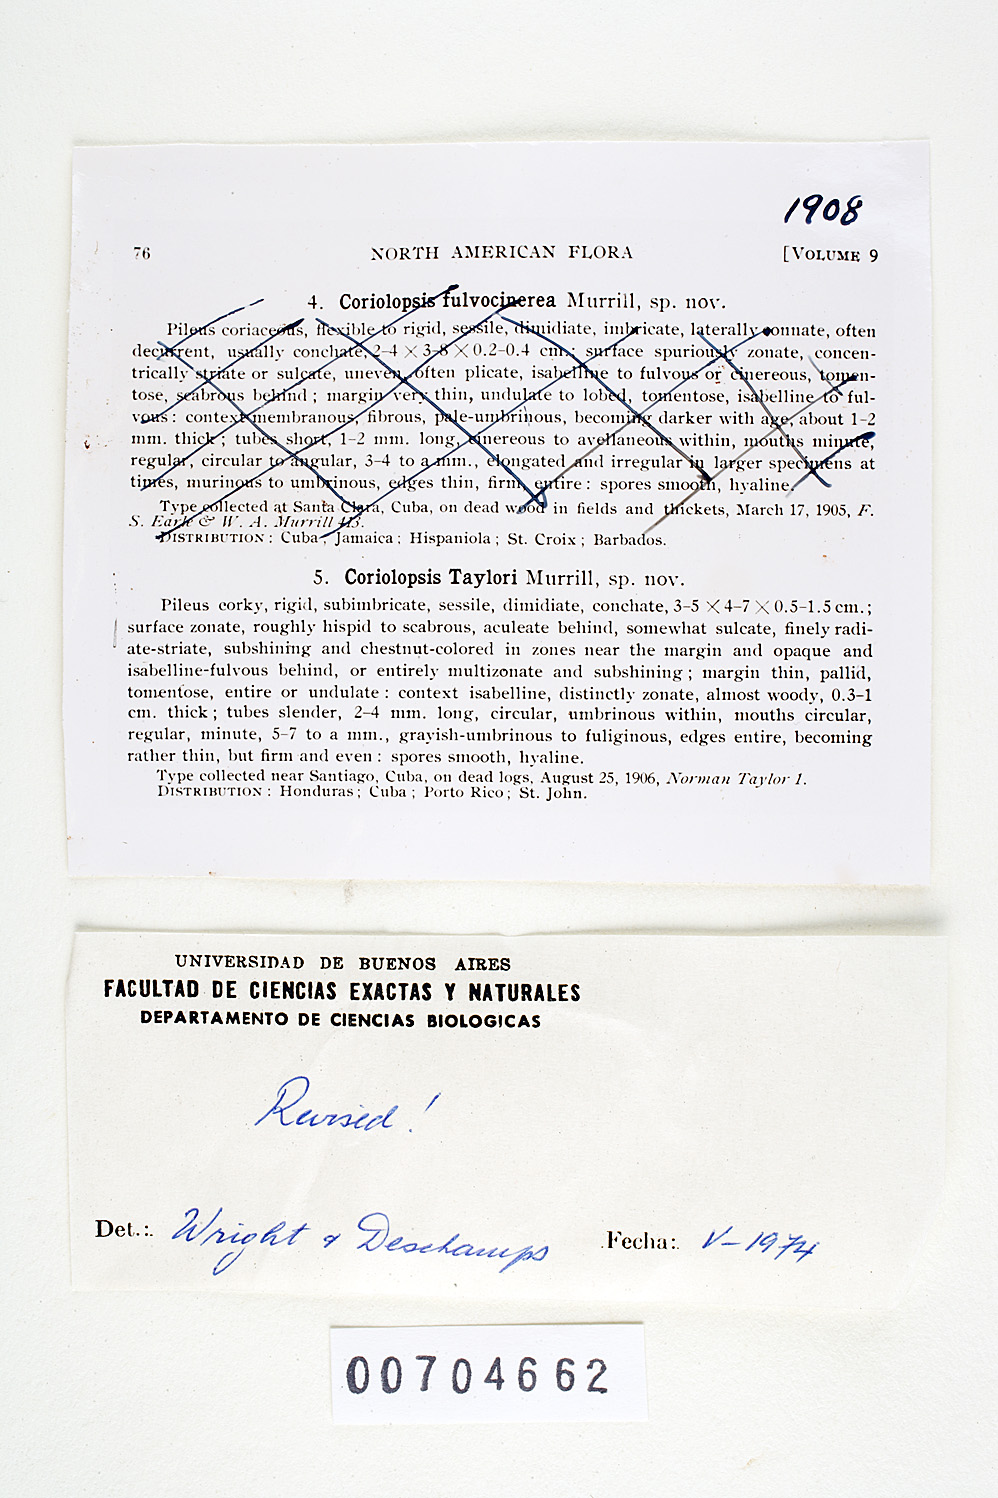 1908
76 NORTH AMERICAN FLORA [VOLUME 9
4. Coriolopsis fulvocinerea Murrill, sp. nov.
Pileus coriaceous, flexible to rigid, sessile, dimidiate, imbricate, laterally connate, often
decurrent, usually conchate, 2-4 × 3-8 × 0.2-0.4 cm.; surface spuriously zonate, concen-
trically striate or sulcate, uneven, often plicate, isabelline to fulvous or cinereous, tomen-
tose, scabrous behind; margin very thin, undulate to lobed, tomentose, isabelline to ful-
vous: context membranous, fibrous, pale-umbrinous, becoming darker with age, about 1-2
mm. thick; tubes short, 1-2 mm. long, cinereous to avellaneous within, mouths minute,
regular, circular to angular, 3-4 to a mm., elongated and irregular in larger specimens at
times, murinous to umbrinous, edges thin, firm, entire: spores smooth, hyaline.
Type collected at Santa Clara, Cuba, on dead wood in fields and thickets, March 17, 1905, F.
S. Earle & W. A. Murrill 413.
DISTRIBUTION: Cuba; Jamaica; Hispaniola; St. Croix; Barbados.
5. Coriolopsis Taylori Murrill, sp. nov.
Pileus corky, rigid, subimbricate, sessile, dimidiate, conchate, 3-5 × 4-7 × 0.5-1.5 cm.;
surface zonate, roughly hispid to scabrous, aculeate behind, somewhat sulcate, finely radi-
ate-striate, subshining and chestnut-colored in zones near the margin and opaque and
isabelline-fulvous behind, or entirely multizonate and subshining; margin thin, pallid,
tomentose, entire or undulate: context isabelline, distinctly zonate, almost woody, 0.3-1
cm. thick; tubes slender, 2-4 mm. long, circular, umbrinous within, mouths circular,
regular, minute, 5-7 to a mm., grayish-umbrinous to fuliginous, edges entire, becoming
rather thin, but firm and even: spores smooth, hyaline.
Type collected near Santiago, Cuba, on dead logs, August 25, 1906, Norman Taylor 1.
DISTRIBUTION: Honduras; Cuba; Porto Rico; St. John.
UNIVERSIDAD DE BUENOS AIRES
FACULTAD DE CIENCIAS EXACTAS Y NATURALES
DEPARTAMENTO DE CIENCIAS BIOLOGICAS
Revised!
Det.: Wright & Deschamps Fecha: V-1974
00704662